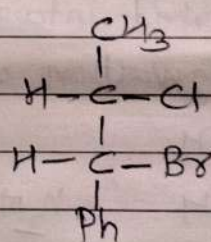 CH3
H-C-Cl
H-C-Br
Ph